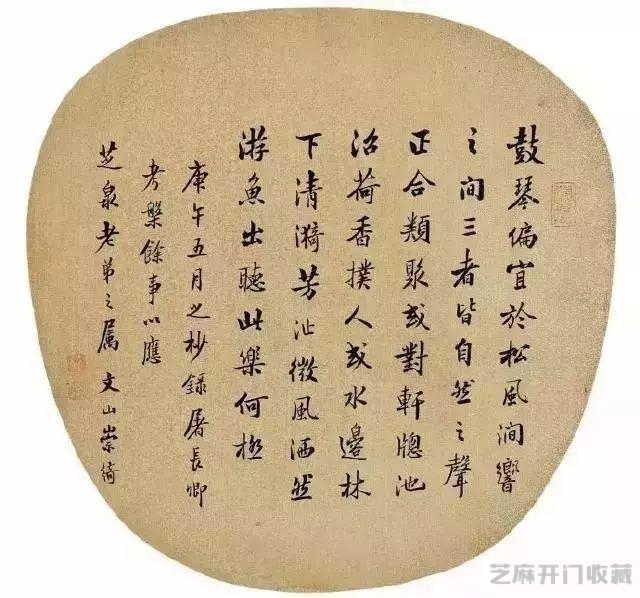 鼓琴偏宜於松風澗響
之間三者皆自然之聲
正合類聚或對軒牕池
沼荷香撲人或水邊林
下清漪芳沚微風洒然
游魚出聽此樂何極
庚午五月之杪錄屠長卿
考槃餘事以應
芝泉老弟之属 文山崇綺
芝麻开门收藏